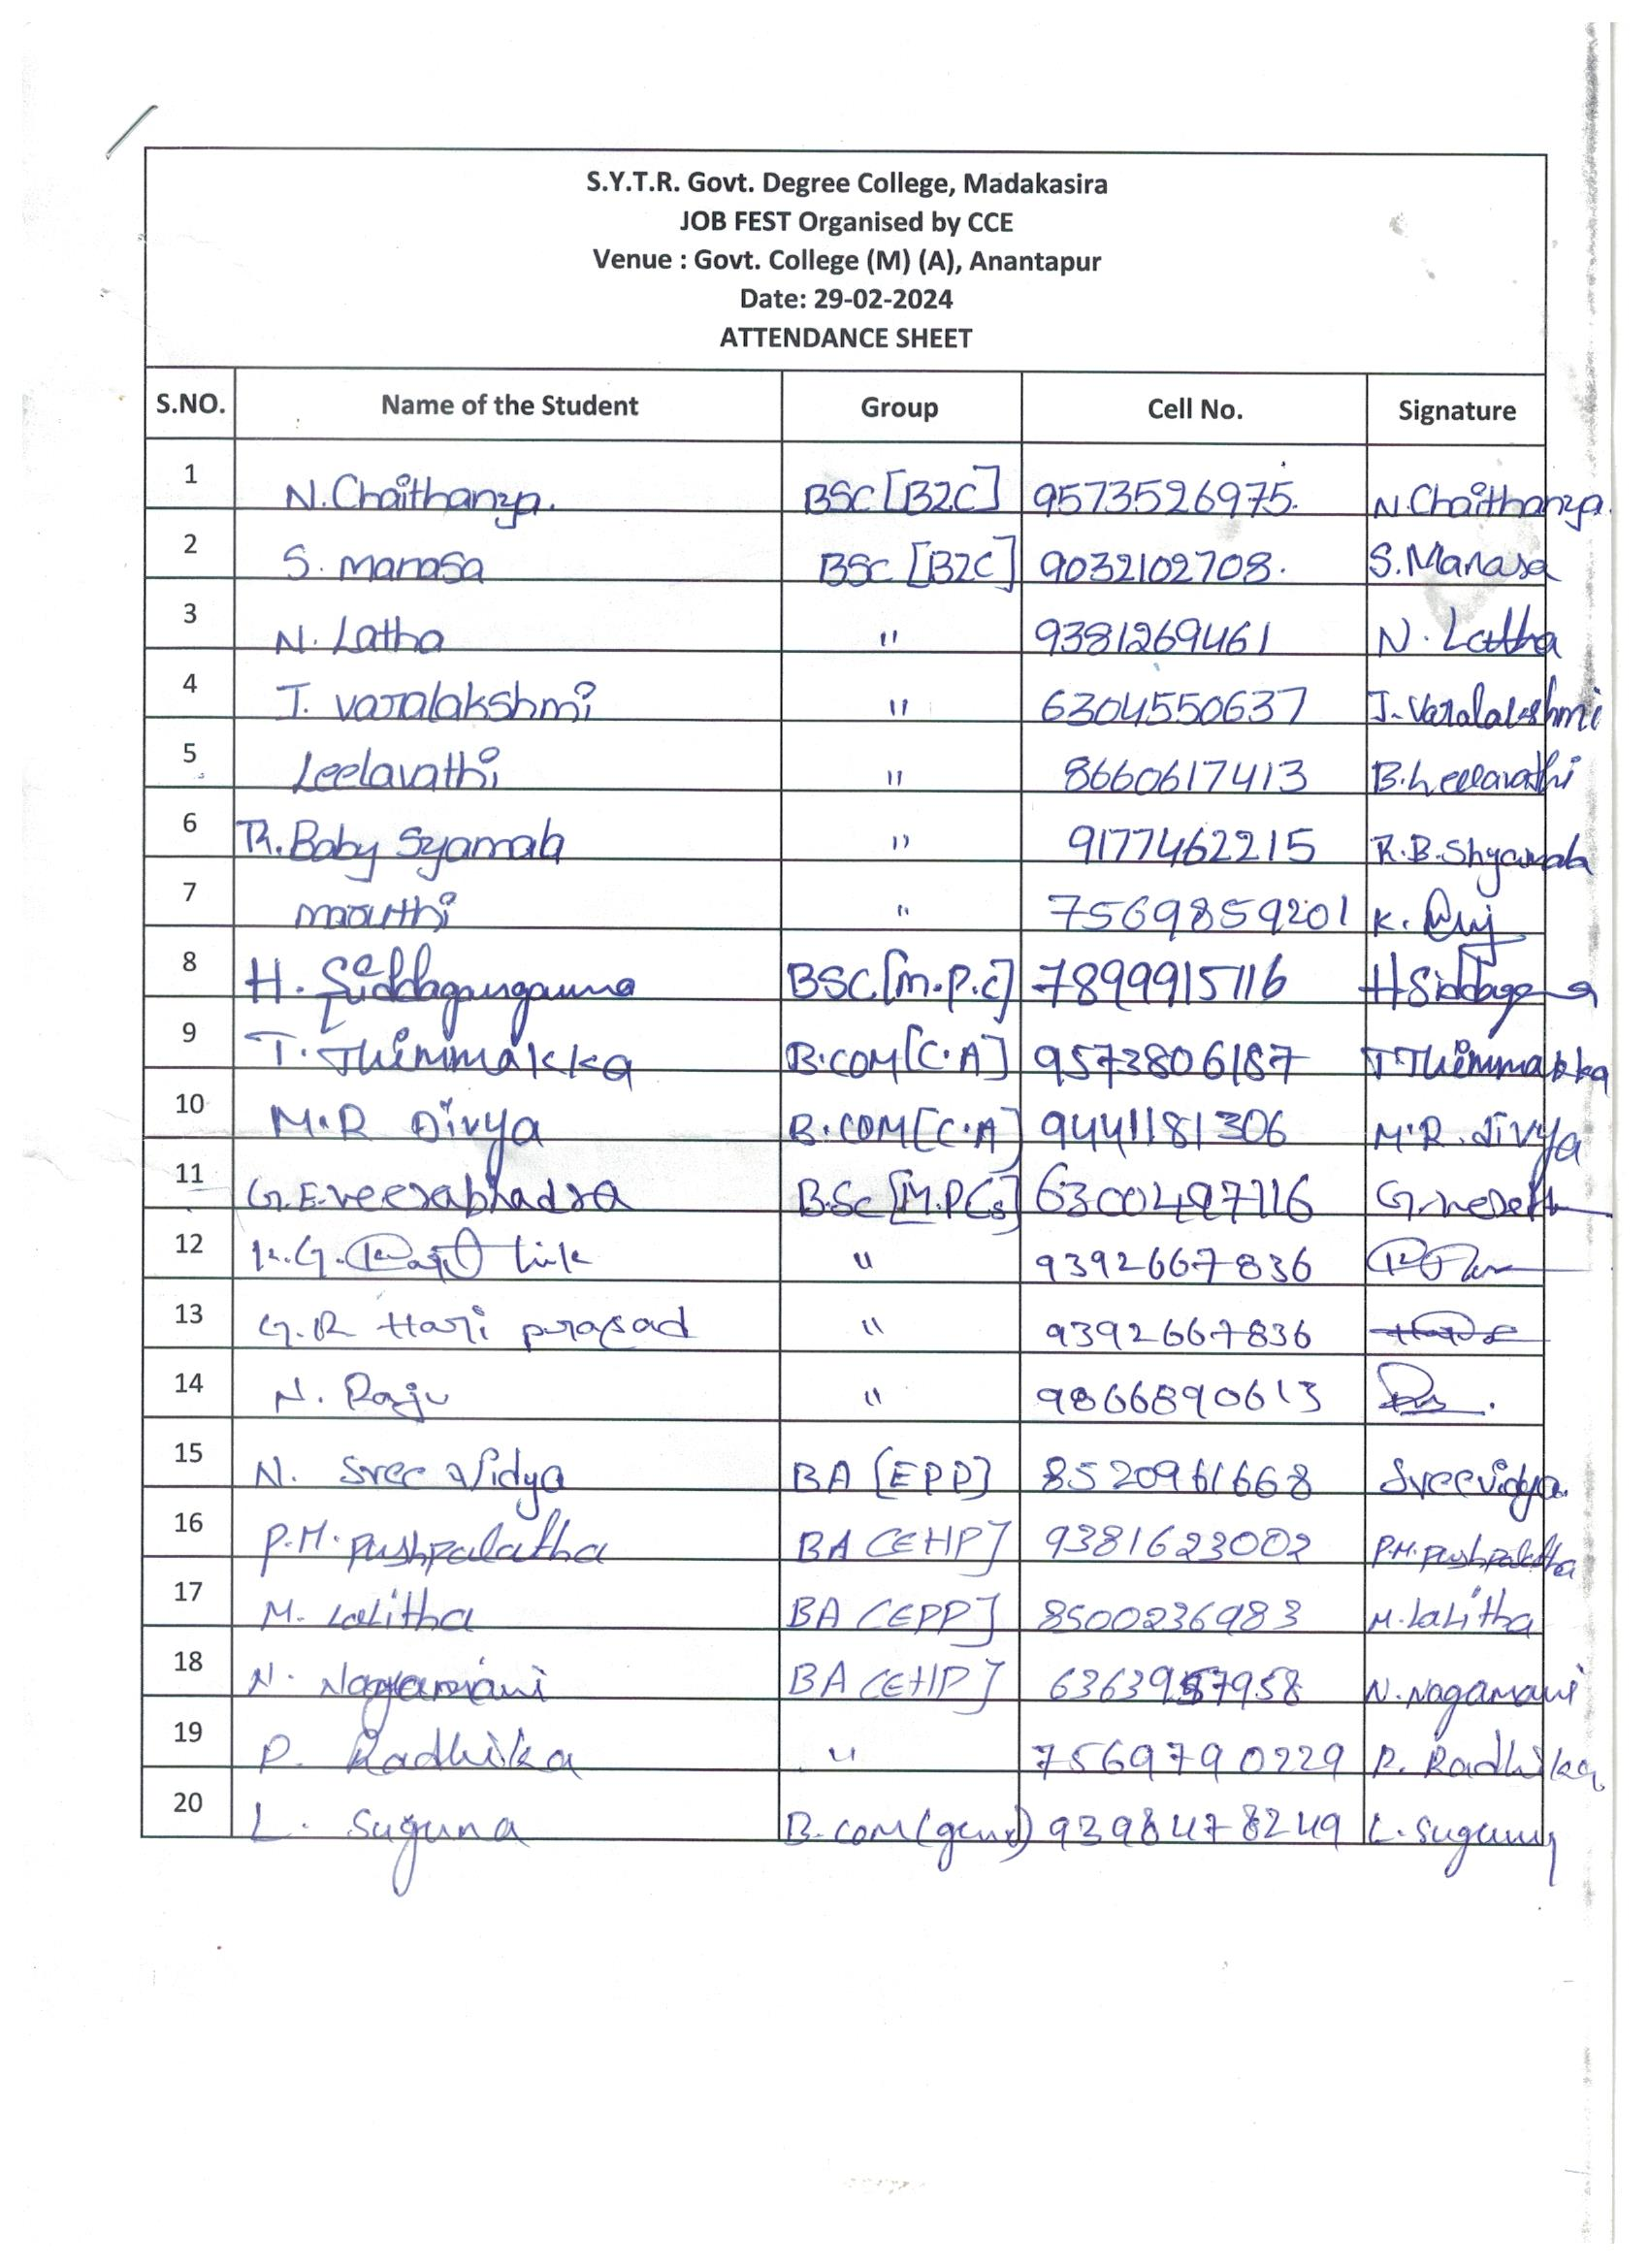 S.Y.T.R. Govt. Degree College, Madakasira
JOB FEST Organised by CCE
Venue : Govt. College (M) (A), Anantapur
Date: 29-02-2024
ATTENDANCE SHEET
S.NO. Name of the Student Group Cell No. Signature
1 N.Chaithanya. BSC [BZC] 9573526975. N.Chaithanya.
2 S. manasa BSC [BZC] 9032102708. S.Manasa
3 N. Latha " 9381269461 N. Latha
4 J. varalakshmi " 6304550637 J. Varalakshmi
5 Leelavathi " 8660617413 B.Leelavathi
6 Baby Syamala " 9177462215 R.B.Shyamala
7 maruthi " 7569859201 K.
8 H. BSC[M.P.C] 7899915116 H
9 T. Thimmakka B.COM[C.A] 9573806187 T Thimmakka
10 M.R Divya B.COM[C.A] 9441181306 M.R.divya
11 G.E.veerabhadra B.Sc [M.PCs] 6300497116
12 K.G. " 9392667836
13 G.R Hari prasad " 9392667836
14 N. Raju " 9866890613
15 N. Sree Vidya BA [EPP] 8520961668 Sreevidya.
16 P.M. pushpalatha BA [EHP] 9381623002 P.M.pushpalatha
17 M. Lalitha BA [EPP] 8500236983 M.Lalitha
18 N. Nagamani BA [EHP] 6363957958 N.Nagamani
19 R. Radhika " 7569790229 R. Radhika
20 L. Suguna B.com(genl) 9398478249 L. Suguna